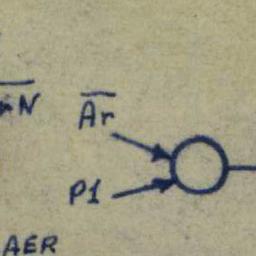 A̅r̅
P1
AER